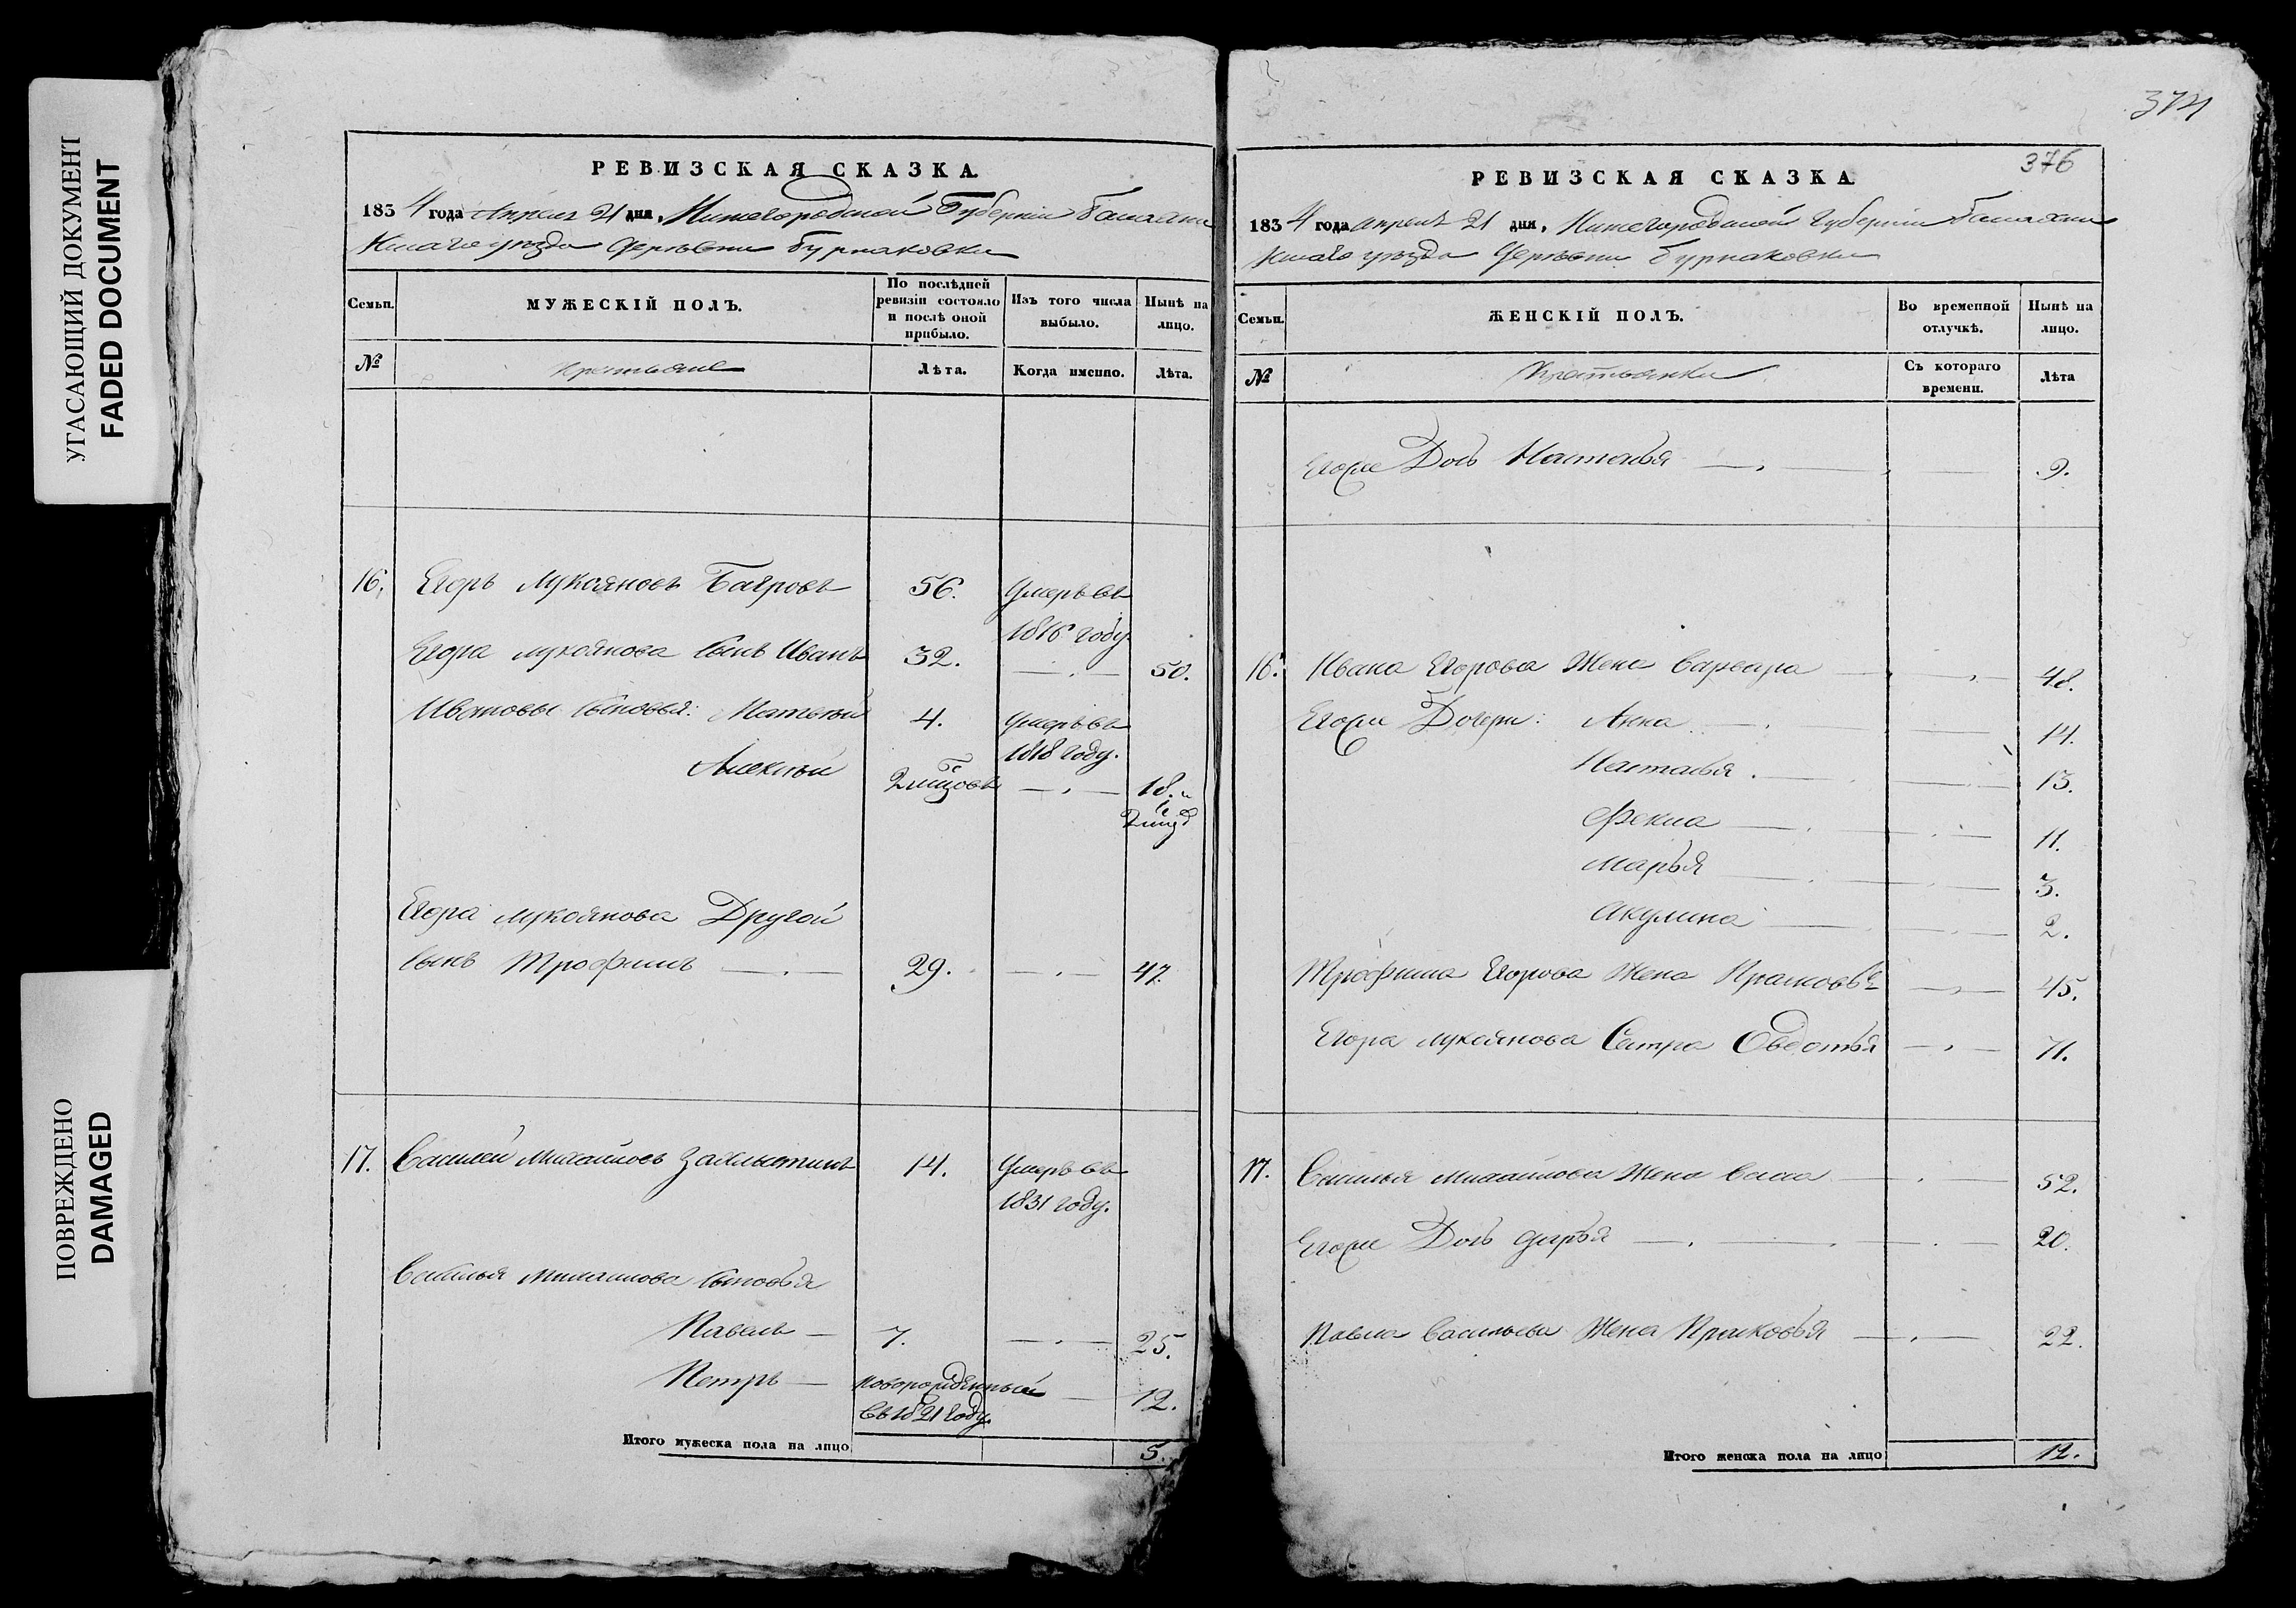 УГАСАЮЩИЙ ДОКУМЕНТ
FADED DOCUMENT
ПОВРЕЖДЕНО
DAMAGED
РЕВИЗСКАЯ СКАЗКА
1834 года Апреля 21 дня, Нижегородской Губерніи Балахни
нскаго уѣзда деревни Бурнаковки
Семьи.
МУЖЕСКІЙ ПОЛЪ.
По послѣдней
ревизіи состояло
и послѣ оной
прибыло.
Изъ того числа
выбыло.
Нынѣ на
лицо.
№
Крестьяне
Лѣта.
Когда именно.
Лѣта.
16. Егоръ Лукояновъ Багровъ 56. Умеръ въ
1816 году.
Егора Лукоянова сынъ Иванъ 32. 50.
Ивановы сыновья: Матвей 4. Умеръ въ
1818 году.
Алексей 2 месцовъ 18. и
2 месц
Егора Лукоянова Другой
сынъ Трофимъ 29. 47.
17. Василей Михайловъ Захлыстинъ 14. Умеръ въ
1831 году.
Василья Михайлова сыновья
Павелъ 7. 25.
Петръ новорожденный
въ 1821 году. 12.
Итого мужеска пола на лицо 5.
374
376
РЕВИЗСКАЯ СКАЗКА
1834 года апреля 21 дня, Нижегородской Губерніи Балахни
нскаго уѣзда деревни Бурнаковки
Семьи.
ЖЕНСКІЙ ПОЛЪ.
Во временной
отлучкѣ.
Нынѣ на
лицо.
№
Крестьянки
Съ котораго
времени.
Лѣта
Егоже Дочь Наталья 9.
16. Ивана Егорова Жена Варвара 48.
Егоже Дочери: Анна 14.
Наталья 13.
Фекла 11.
Марья 3.
Акулина 2.
Трофима Егорова Жена Прасковья 45.
Егора Лукоянова Сестра Овдотья 71.
17. Василья Михайлова Жена Васса 52.
Егоже Дочь Дарья 20.
Павла Васильева Жена Прасковья 22.
Итого женска пола на лицо 12.